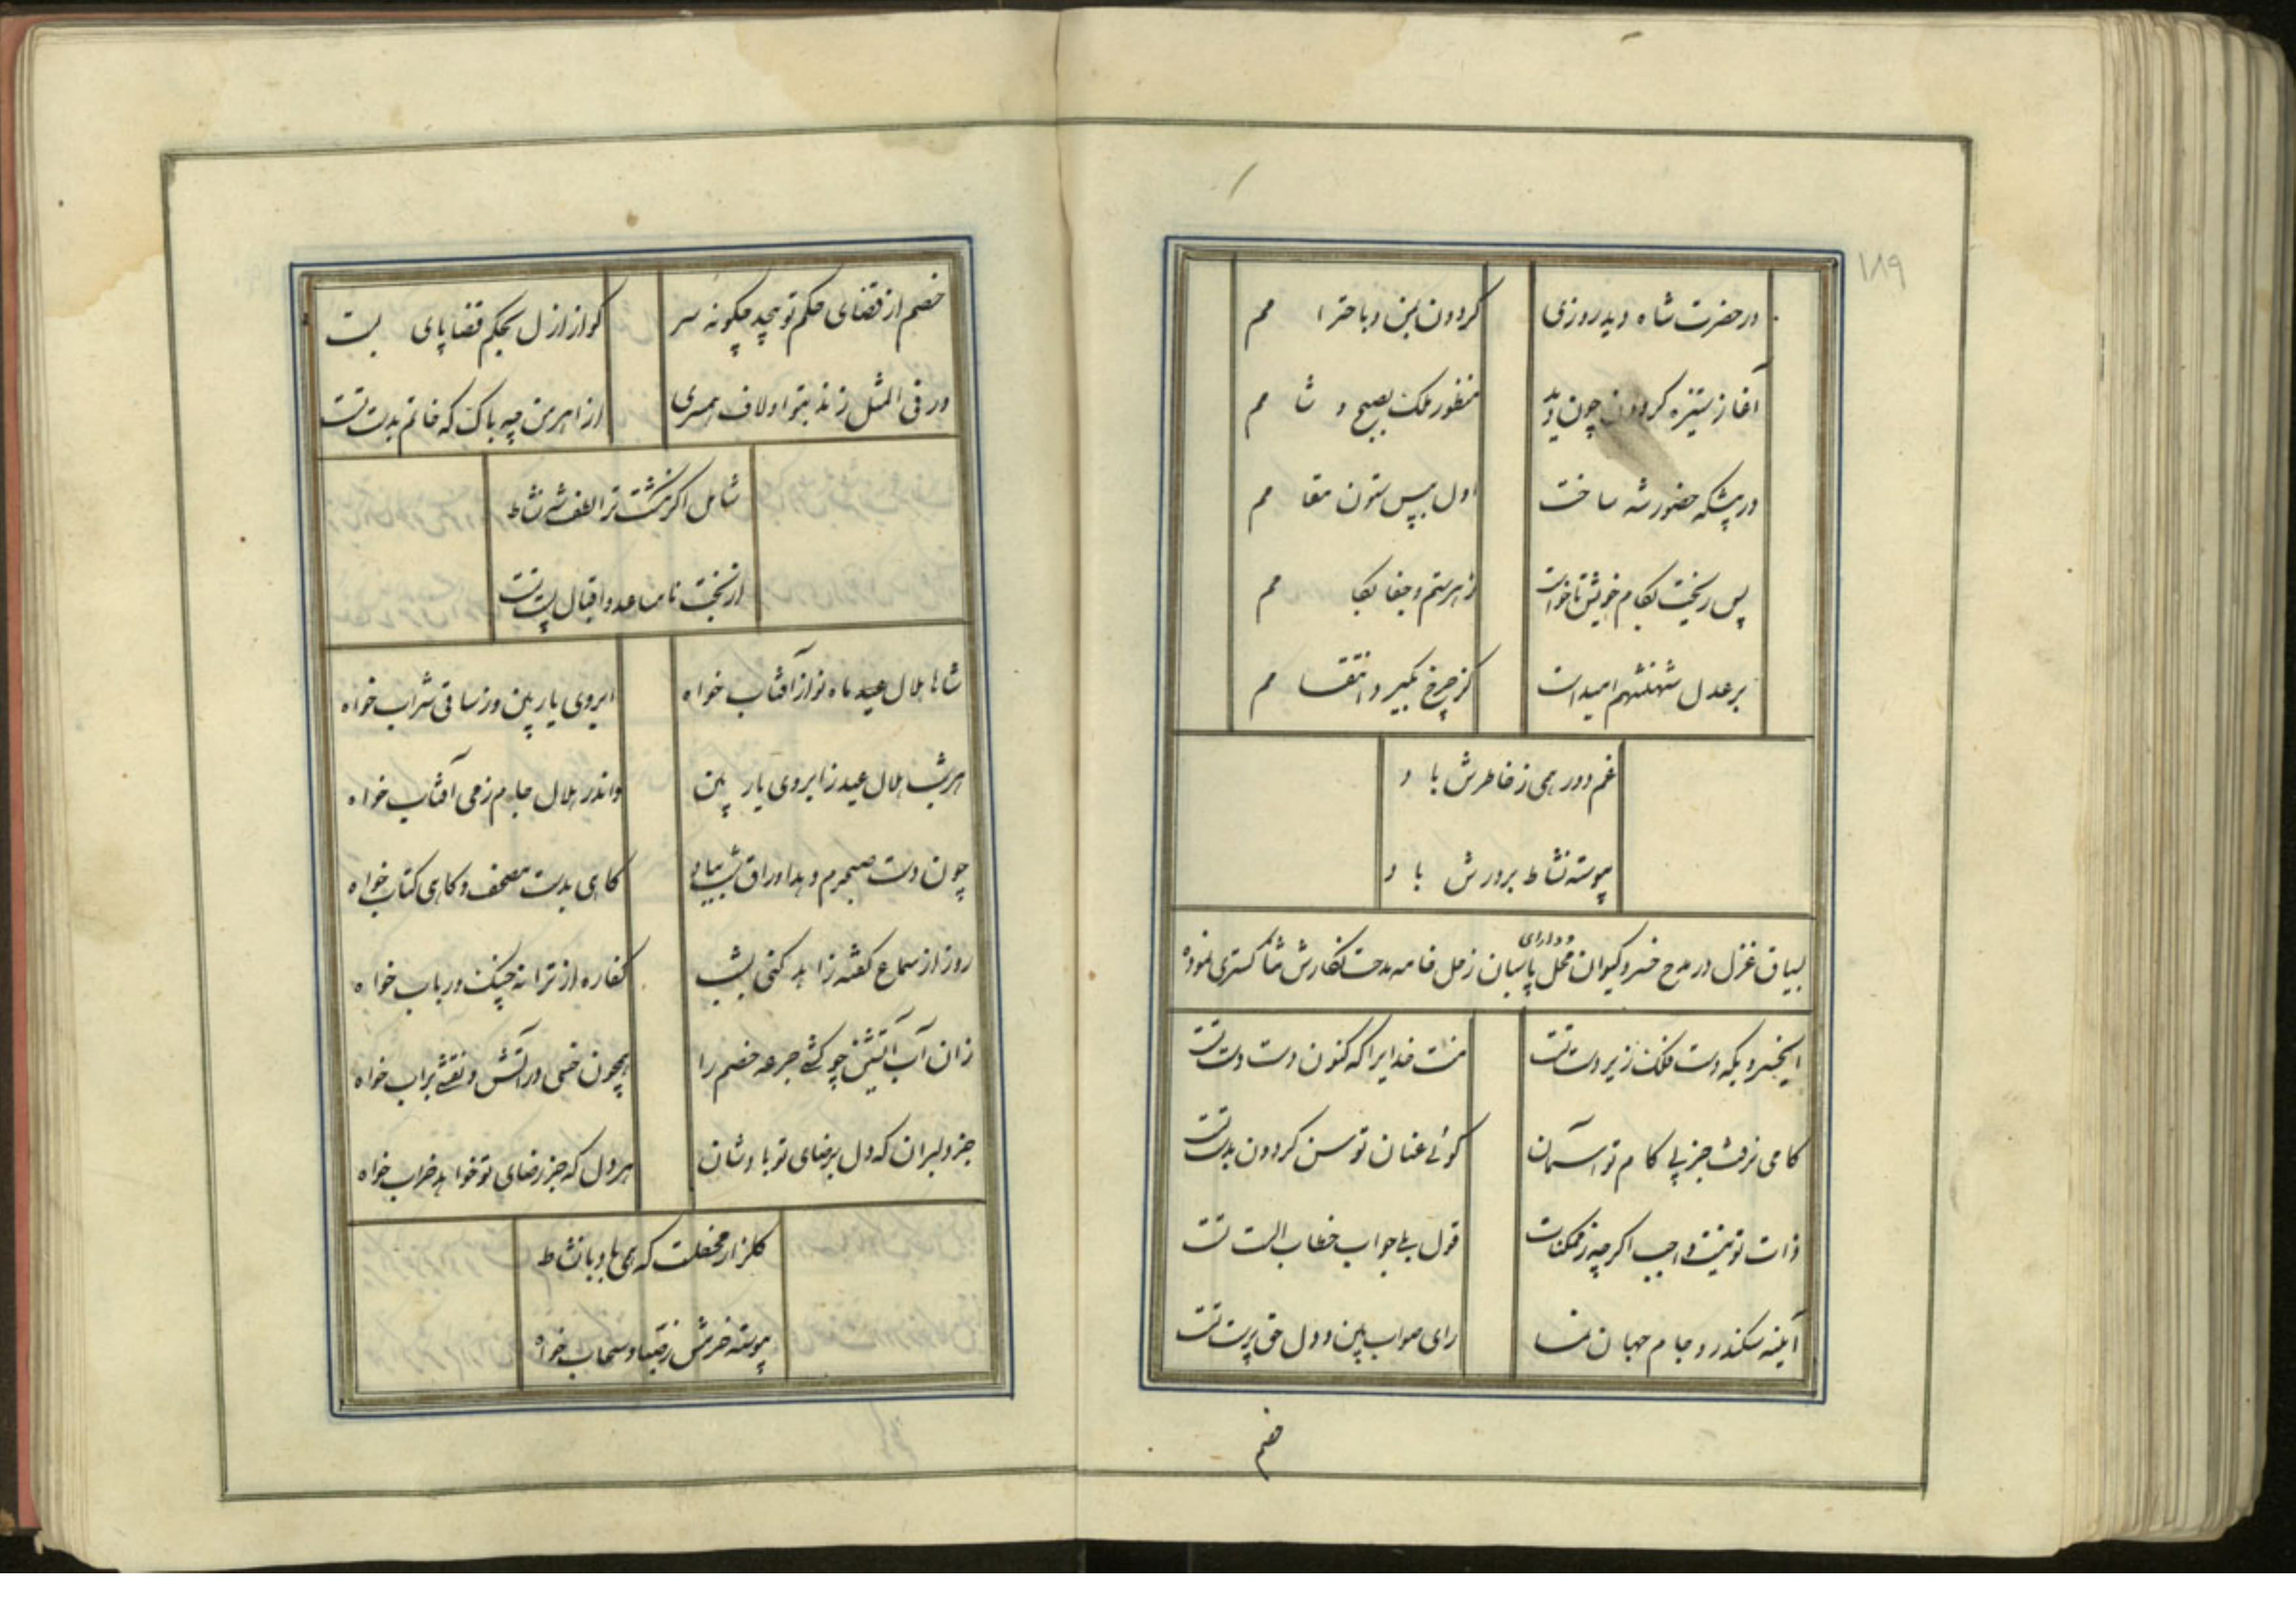 ۱۸۹
در حضرت شاه دید روزی
کردون بمن و باحترا مم
آغاز ستیزه کردون چون دید
منظور ملک بصبح و شا مم
در پیشکه حضور شه ساخت
اول بپس ستون مقا مم
پس ریخت بکام خویش تا خواست
زهر ستم و جفا بکا مم
بر عدل شهنشهم امید است
کز چرخ بکیرد انتقا مم
غم دور همی ز خاطرش با د
پیوسته نشاط بر درش با د
بسیاق غزل در مدح خسرو کیوان محل و دارای پاسبان زحل خامه مدحت نکارش ثنا کستری نموده
ایخسرویکه دست فلک زیر دست تست
منت خدایرا که کنون دست دست تست
کامی نرفت جز پی کام تو آسمان
کوئی عنان توسن کردون بدست تست
ذات تو نیست واجب اکر چه ز ممکنات
قول بلی جواب خطاب الست تست
آینه سکندر و جام جهان نما
رای صواب بین و دل حق پرست تست
خصم
خصم از قضای حکم تو پیچد چکونه سر
کو از ازل بحکم قضا پای بست
ور فی المثل زند بتو او لاف همسری
از اهرمن چه باک که خاتم بدست تست
شامل اکر نکشت ترا لطف شه نشاط
از بخت نامساعد و اقبال پست تست
شاها هلال عید ماه نو از آفتاب خواه
ابروی یار بین وز ساقی شراب خواه
هر شب هلال عید ز ابروی یار بین
واندر هلال جام ز می آفتاب خواه
چون دست صبحدم دهد اوراق شب بباد
کاهی بدست مصحف و کاهی کتاب خواه
روز از سماع کفته زاهد کنی بشب
کفاره از ترانه چنک و رباب خواه
زان آب آتشین چو کشی جرعه خصم را
همچون خسی در آتش و نقشی بر اب خواه
جز دلبران که دل برضای تو باد شان
هر دل که جز رضای تو خواهد خراب خواه
کلزار محفلت که همی باد با نشاط
پیوسته خرمش ز سحاب خواه